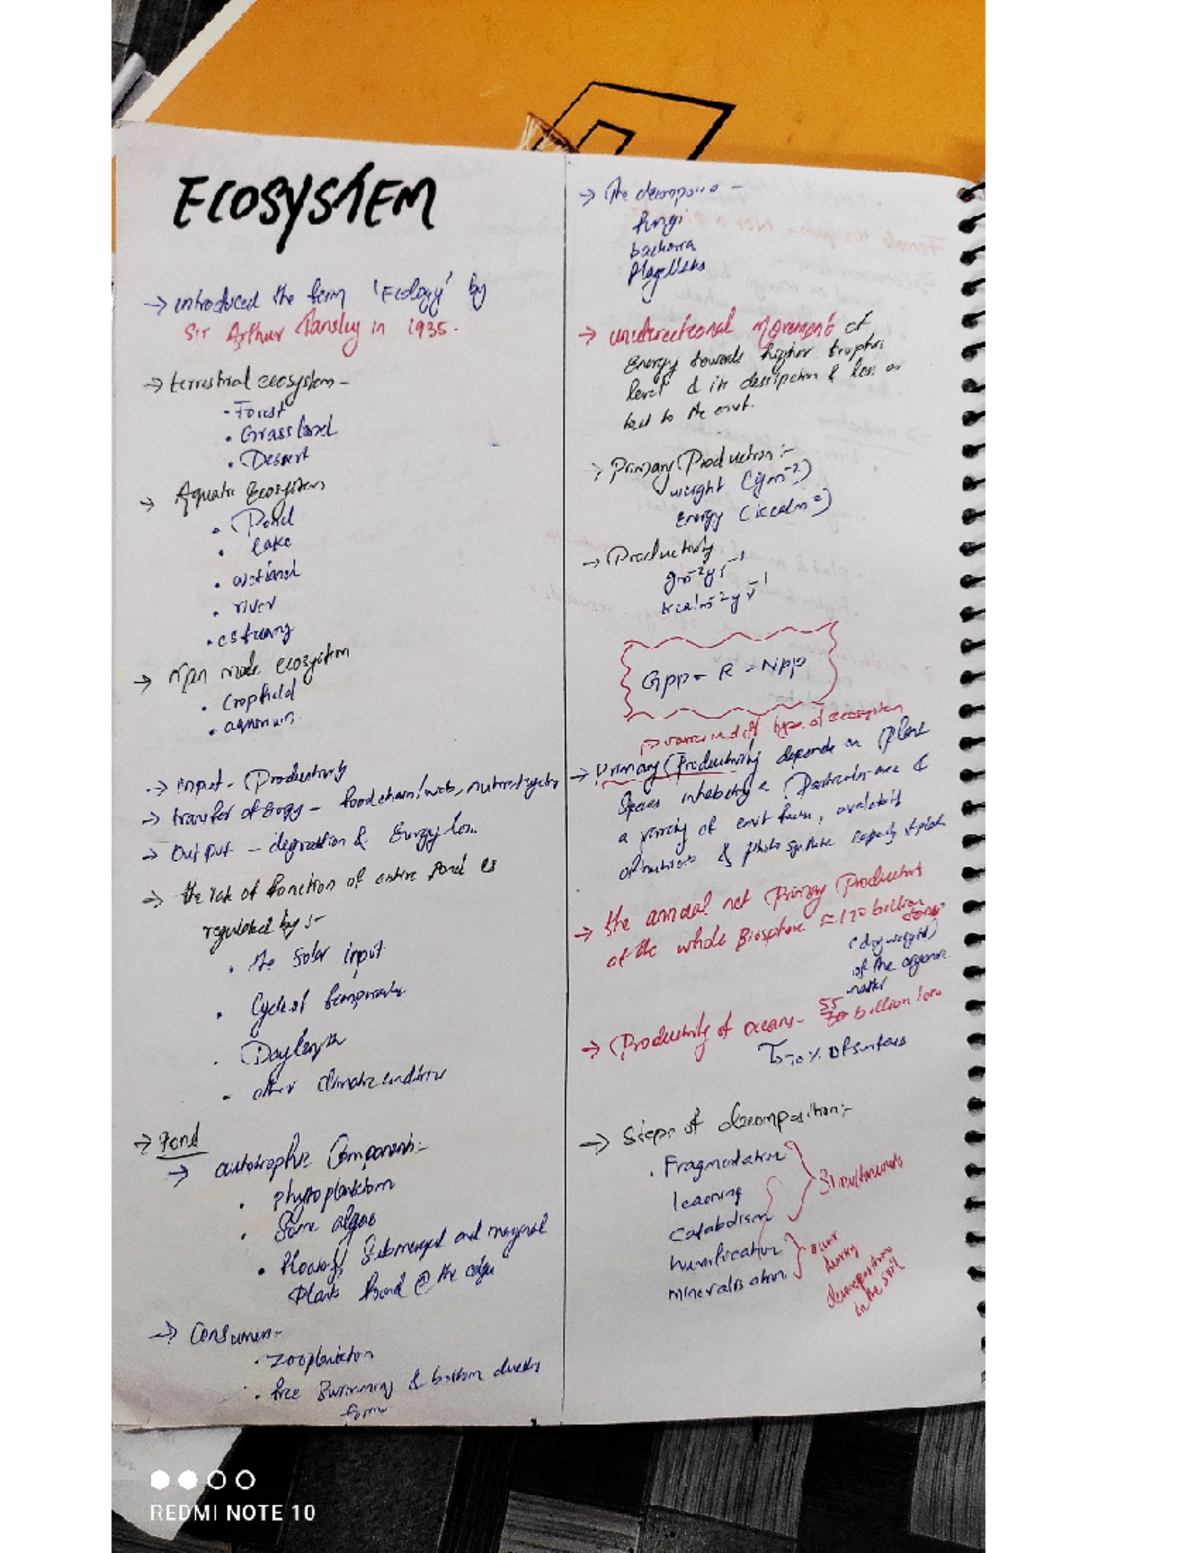 ECOSYSTEM
→ introduced the term 'Ecology' by
Sir Arthur Tansley in 1935.
→ terrestrial ecosystem -
- Forest
• Grassland
• Desert
→ Aquatic Ecosystem
• Pond
• lake
• wetland
• river
• estuary
→ Man made ecosystem
• Cropfield
• aquarium
→ input - Productivity
→ transfer of Engy - food chain/web, nutrient cycle
→ Output - degradation & Energy loss
→ the rate of function of entire Pond is
regulated by :-
• the Solar input
• Cycle of temperature
• Day length
• other climatic condition
→ Pond
→ autotrophic Components:-
• phytoplankton
• Some algae
• floating, Submerged and marginal
Plants found @ the edge
→ Consumers:-
• zooplankton
• free Swimming & bottom dwelling
form
→ The decomposers -
fungi
bacteria
flagellates
→ unidirectional Movement of
Energy towards higher trophic
level & its dissipation & loss as
heat to the envt.
→ Primary Production :-
weight (gm⁻²)
Energy (kcalm⁻²)
→ Productivity
gm⁻²yr⁻¹
kcalm⁻²yr⁻¹
GPP - R = NPP
varies in diff types of ecosystem
→ Primary Productivity depends on Plant
Species inhabiting a Particular area &
a variety of envt factors, availability
of nutrients & photosynthetic capacity of plants
→ the annual net Primary Productivity
of the whole Biosphere ≈ 170 billion
tons
(dry weight)
of the organic
matter
→ Productivity of oceans - 55 billion tons
70% of surface
→ Steps of decomposition:-
• Fragmentation
leaching
Catabolism
humification
mineralisation
Simultaneously
occur
during
decomposition
in the soil
REDMI NOTE 10